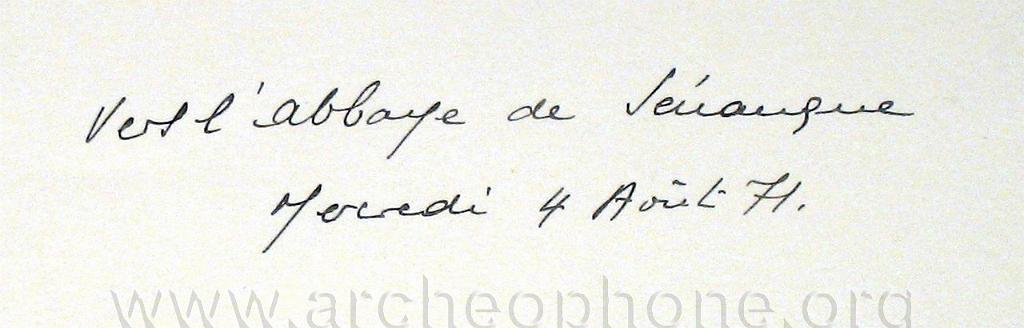 Vers l'abbaye de Sénanque
Mercredi 4 Août 71.
www.archeophone.org